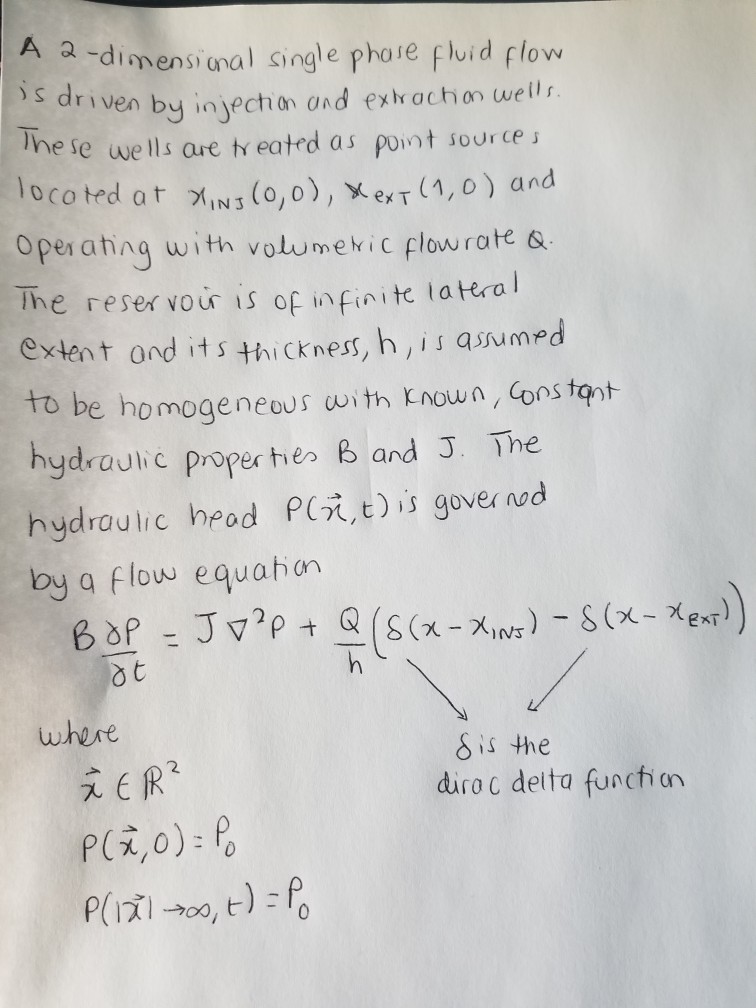 A 2-dimensional single phase fluid flow
is driven by injection and extraction wells.
These wells are treated as point sources
located at x_INJ (0,0), x_EXT (1,0) and
operating with volumetric flowrate Q.
The reservoir is of infinite lateral
extent and its thickness, h, is assumed
to be homogeneous with known, constant
hydraulic properties B and J. The
hydraulic head P(x⃗,t) is governed
by a flow equation
B ∂P/∂t = J ∇²P + Q/h (δ(x - x_INJ) - δ(x - x_EXT))
where
δ is the
x⃗ ∈ ℝ²
dirac delta function
P(x⃗,0) = P₀
P(|x⃗| → ∞, t) = P₀